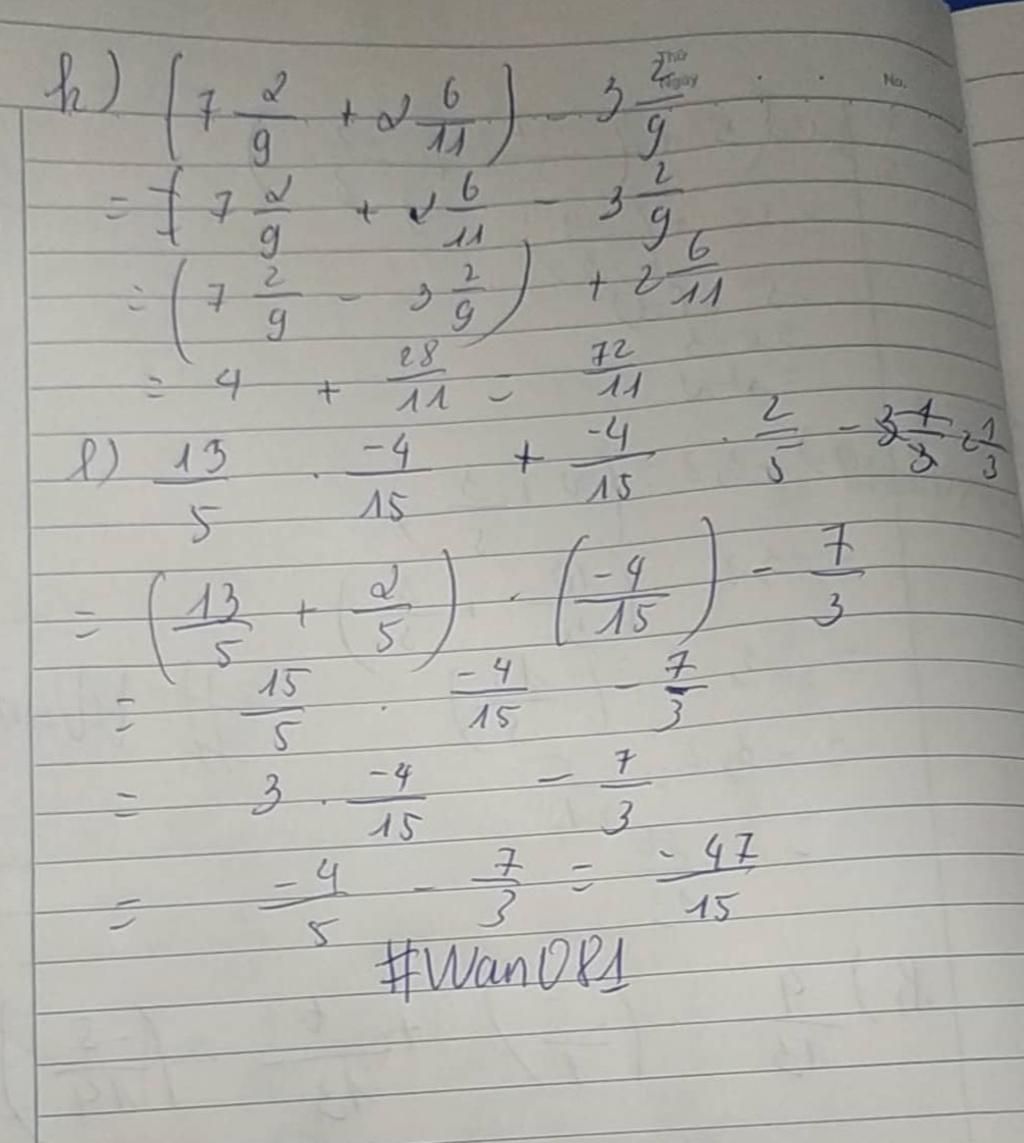 Thứ
Ngày No.
h) (7 2/9 + 2 6/11) - 3 2/9
= 7 2/9 + 2 6/11 - 3 2/9
= (7 2/9 - 3 2/9) + 2 6/11
= 4 + 28/11 = 72/11
l) 13/5 . -4/15 + -4/15 . 2/5 - 2 1/3
= (13/5 + 2/5) . (-4/15) - 7/3
= 15/5 . -4/15 - 7/3
= 3 . -4/15 - 7/3
= -4/5 - 7/3 = -47/15
#Wan081